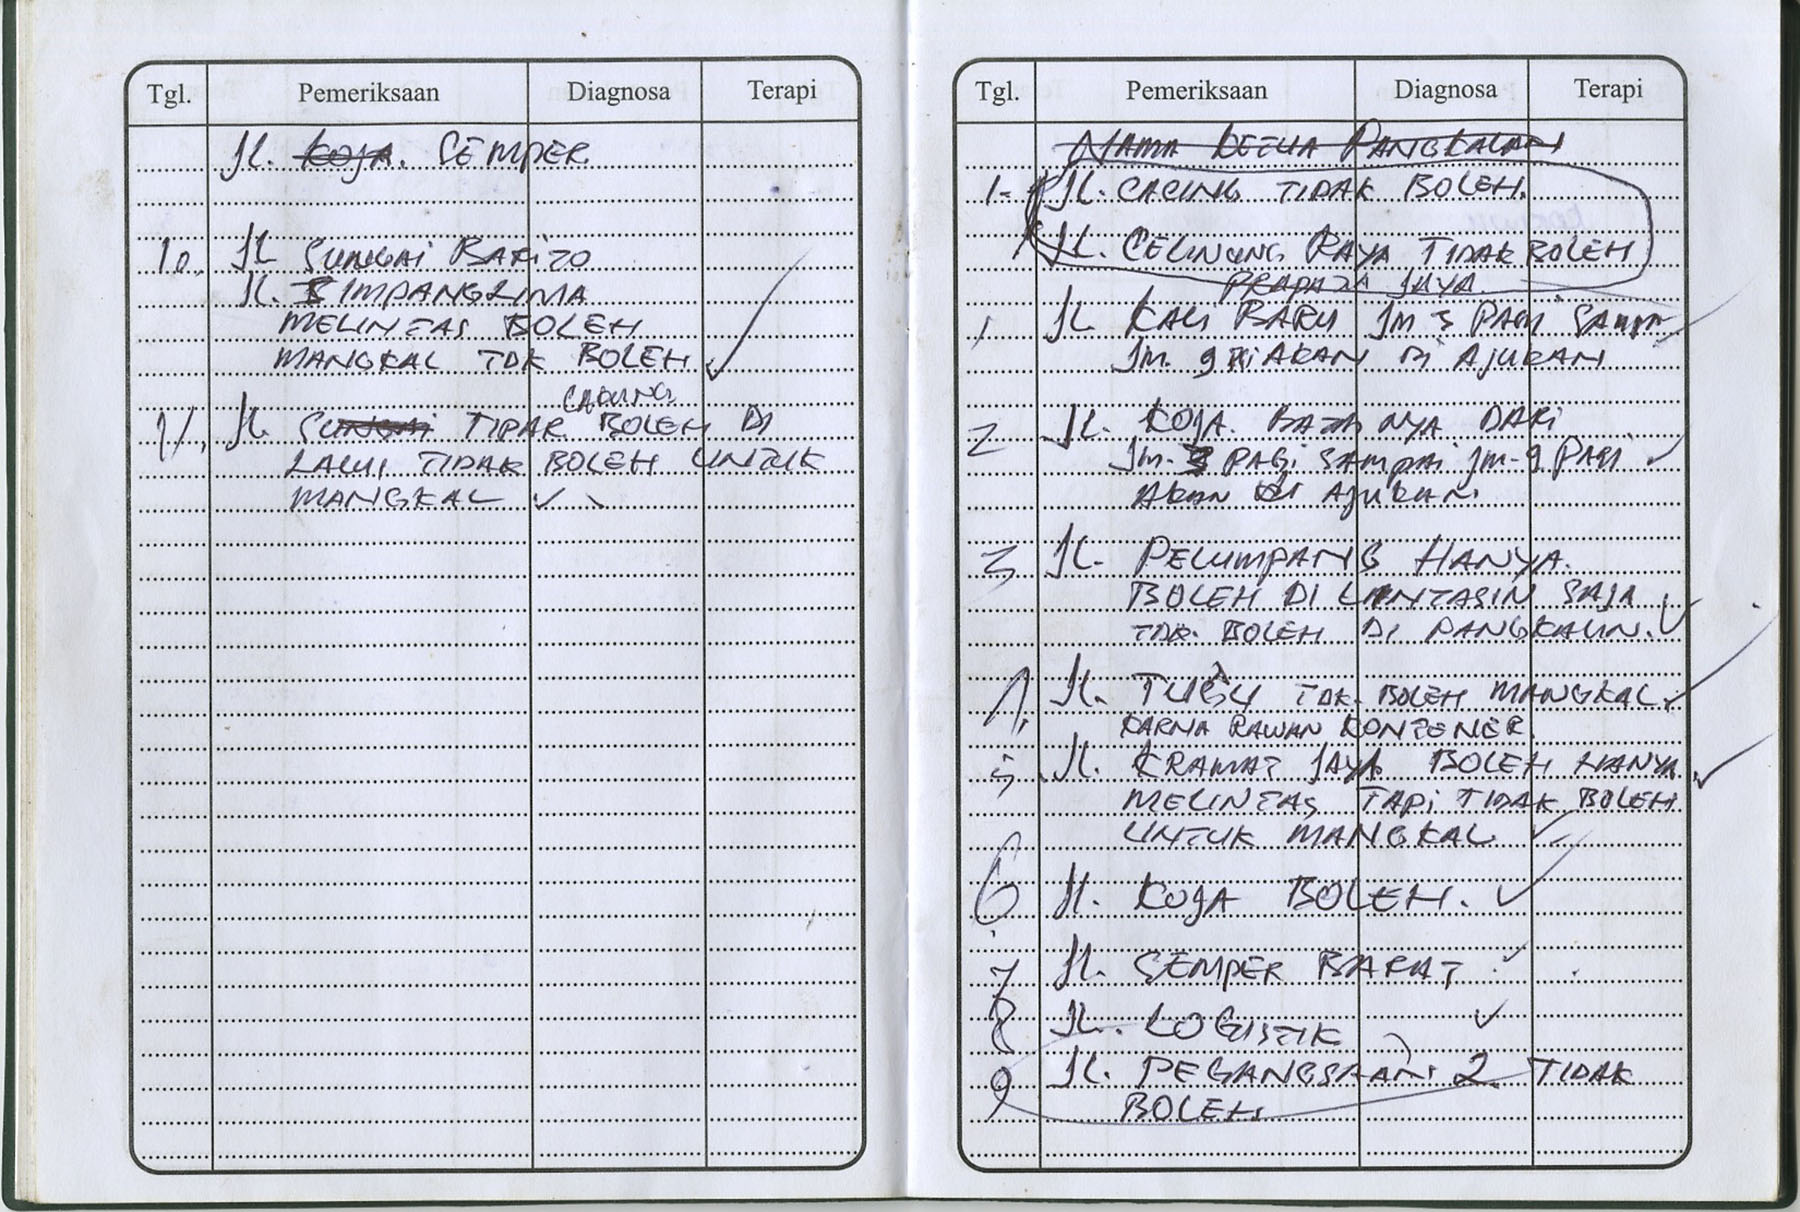 Tgl. Pemeriksaan Diagnosa Terapi
Jl. KOJA. SEMPER.
10. JL SUNGAI BARIZO
JL. SIMPANGLIMA
MELINTAS BOLEH
MANGKAL TDK BOLEH
CADUNG
11. JL. SUNGAI TIDAK BOLEH DI
LALUI TIDAK BOLEH UNTUK
MANGKAL
Tgl. Pemeriksaan Diagnosa Terapi
NAMA KETUA PANGKALAN
1- JL. CACING TIDAK BOLEH.
JL. CELINCING RAYA TIDAK BOLEH
JAYA
1 JL KALI BARU Jm 3 PAGI SAMPAI
Jm. 9 DIAKAN DI AJUKAN
2 JL. KOJA. BATASNYA DARI
Jm. 3 PAGI SAMPAI Jm-9 PAGI
AKAN DI AJUKAN.
3 JL. PELUMPANG HANYA.
BOLEH DI LINTASIN SAJA
TDK. BOLEH DI PANGKALIN.
4. JL. TUGU TDK. BOLEH MANGKAL
KARNA RAWAN KONTENER.
5. JL. KRAMAT JAYA BOLEH HANYA
MELINTAS TAPI TIDAK BOLEH
UNTUK MANGKAL
6. JL. KOJA BOLEH.
7 JL. SEMPER BARAT
8 JL. LOGISTIK
9 JL. PEGANGSAAN 2 TIDAK
BOLEH